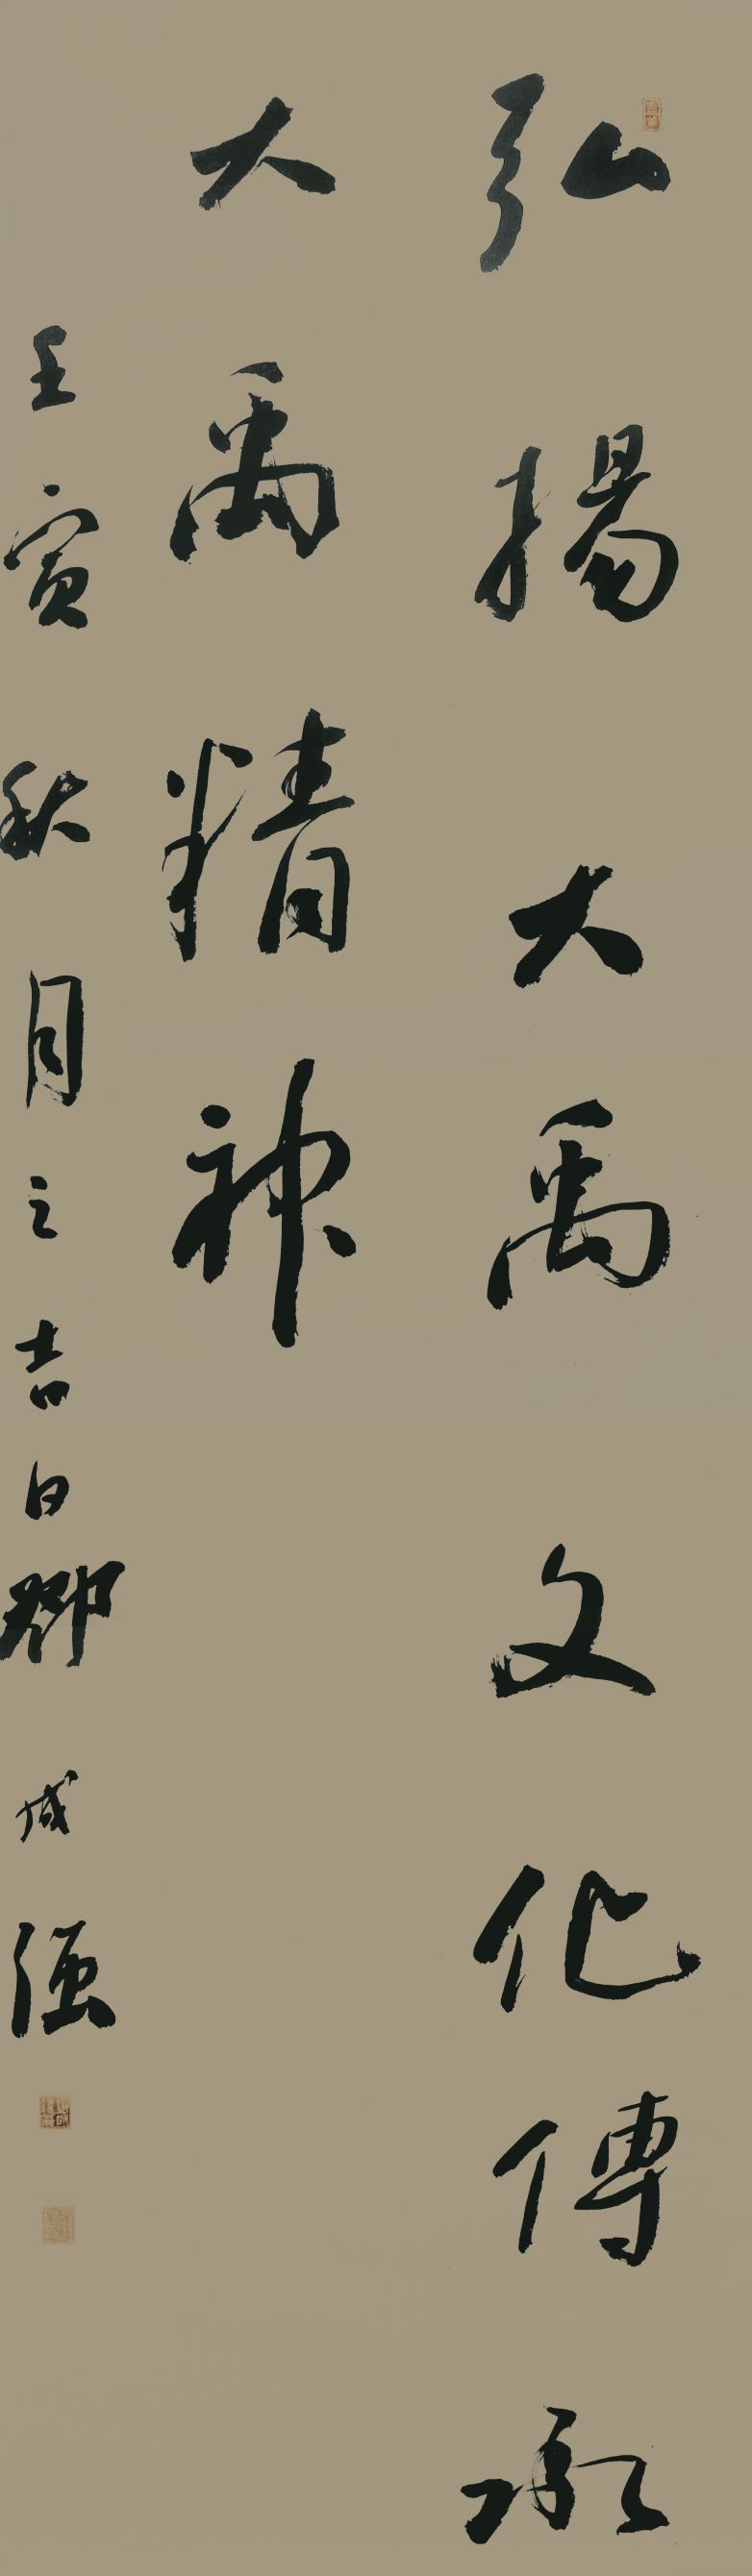 弘揚大禹文化傳承
大禹精神
壬寅秋月之吉日鄧成强